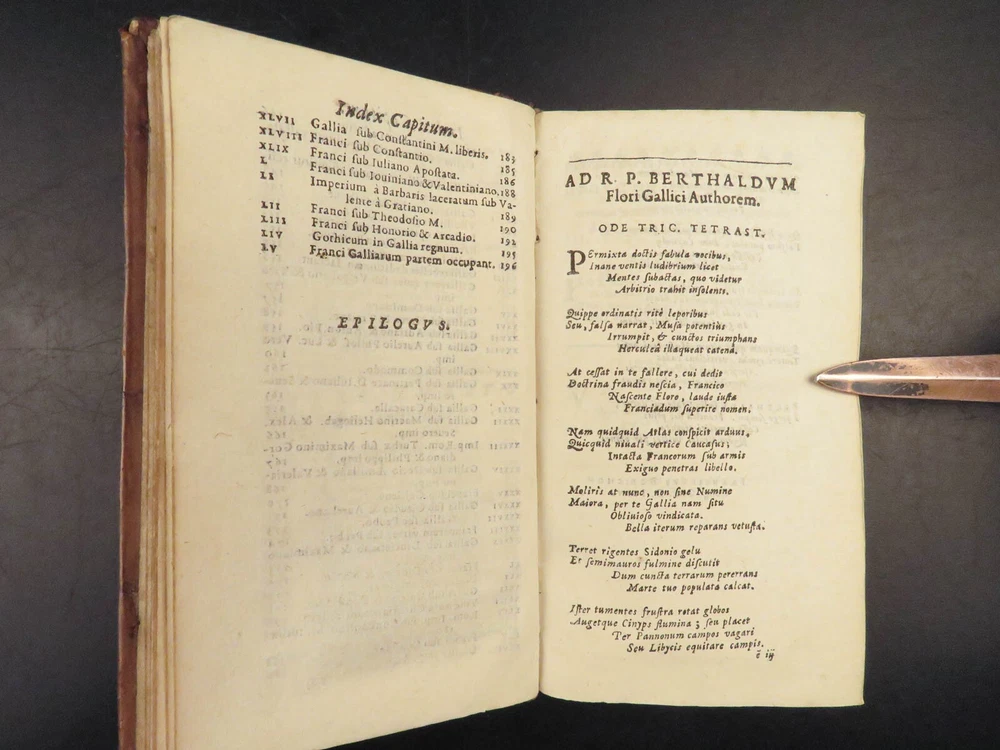 Index Capitum.
XLVII Gallia ſub Conſtantini M. liberis. 183
XLVIII Franci ſub Conſtantio. 185
XLIX Franci ſub Iuliano Apoſtata. 186
L Franci ſub Iouiniano & Valentiniano. 188
LI Imperium à Barbaris laceratum ſub Va-
lente à Gratiano. 189
LII Franci ſub Theodoſio M. 190
LIII Franci ſub Honorio & Arcadio. 192
LIV Gothicum in Gallia regnum. 195
LV Franci Galliarum partem occupant. 196
EPILOGVS.
AD R. P. BERTHALDVM
Flori Gallici Authorem.
ODE TRIC. TETRAST.
PErmixta doctis fabula vocibus,
Inane ventis ludibrium licet
Mentes ſubactas, quo videtur
Arbitrio trahit inſolents.
Quippe ordinatis ritè leporibus
Seu, falſa narrat, Muſa potentiùs
Irrumpit, & cunctos triumphans
Herculeâ illaqueat catenâ.
At ceſſat in te fallere, cui dedit
Doctrina fraudis neſcia, Francico
Naſcente Floro, laude iuſta
Franciadum ſuperire nomen.
Nam quidquid Atlas conſpicit arduus,
Quicquid niuali vertice Caucaſus;
Intacta Francorum ſub armis
Exiguo penetras libello.
Moliris at nunc, non ſine Numine
Maiora, per te Gallia nam ſitu
Obliuioſo vindicata.
Bella iterum reparans vetuſta.
Terret rigentes Sidonio gelu
Et ſemimauros fulmine diſcutit
Dum cuncta terrarum pererrans
Marte tuo populata calcat.
Iſter tumentes fruſtra rotat globos
Augetque Cinyps flumina; ſeu placet
Ter Pannonum campos vagari
Seu Libycis equitare campis.
ẽ iij